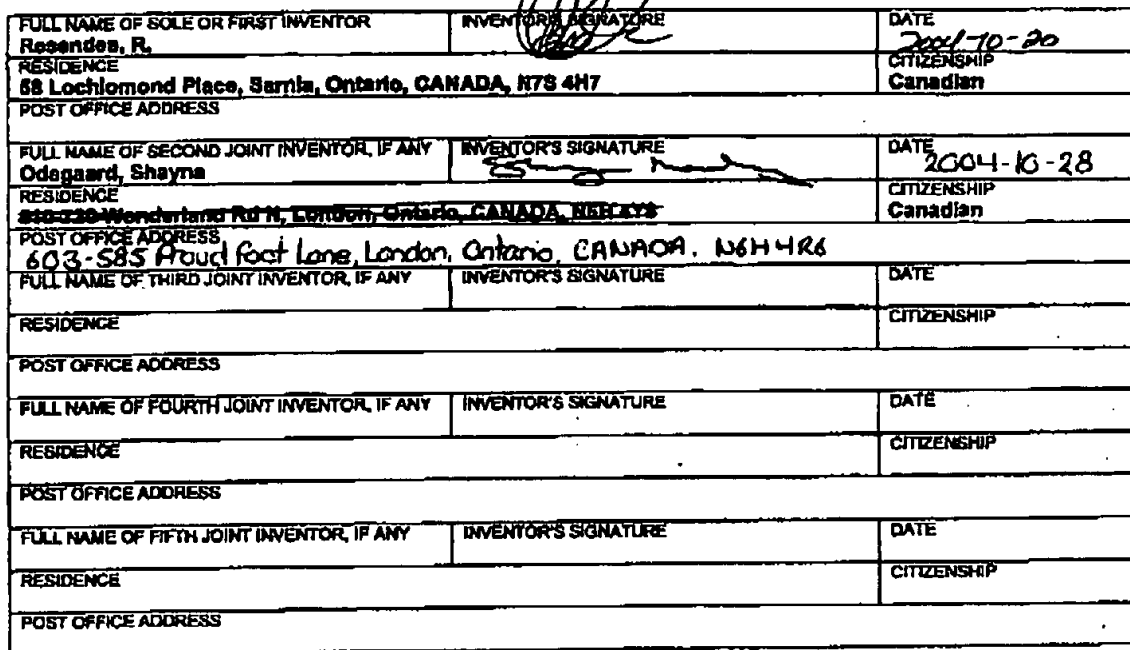 FULL NAME OF SOLE OR FIRST INVENTOR INVENTOR'S SIGNATURE DATE
Resendes, R. 2004-10-20
RESIDENCE CITIZENSHIP
58 Lochlomond Place, Sarnia, Ontario, CANADA, N7S 4H7 Canadian
POST OFFICE ADDRESS
FULL NAME OF SECOND JOINT INVENTOR, IF ANY INVENTOR'S SIGNATURE DATE
Odegaard, Shayna 2004-10-28
RESIDENCE CITIZENSHIP
Wonderland Rd N, London, Ontario, CANADA, Canadian
POST OFFICE ADDRESS
603-585 Proudfoot Lane, London, Ontario, CANADA. N6H 4R6
FULL NAME OF THIRD JOINT INVENTOR, IF ANY INVENTOR'S SIGNATURE DATE
RESIDENCE CITIZENSHIP
POST OFFICE ADDRESS
FULL NAME OF FOURTH JOINT INVENTOR, IF ANY INVENTOR'S SIGNATURE DATE
RESIDENCE CITIZENSHIP
POST OFFICE ADDRESS
FULL NAME OF FIFTH JOINT INVENTOR, IF ANY INVENTOR'S SIGNATURE DATE
RESIDENCE CITIZENSHIP
POST OFFICE ADDRESS